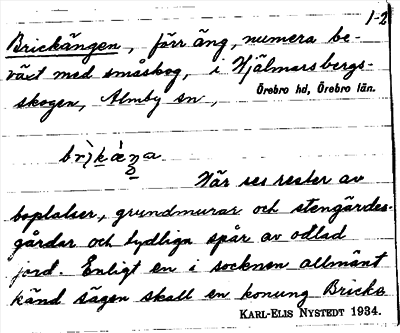 1-2
Brickängen, förr äng, numera be-
växt med småskog, i Hjälmarsbergs-
skogen, Almby sn,
Örebro hd, Örebro län.
Här ses rester av
boplatser, grundmurar och stengärdes-
gårdar och tydliga spår av odlad
jord. Enligt en i socknen allmänt
känd sägen skall en konung Bricke
KARL-ELIS NYSTEDT 1934.